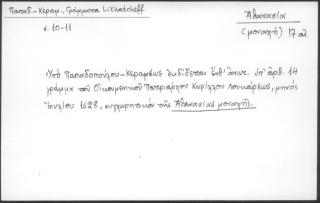 Παπαδ-Κεραμ., Γράμματα Lixhatcheff
Ἀθανασία
σ. 10-11
(μοναχή) 17 αἰ.
Ὑπὸ Παπαδοπούλου-Κεραμέως ἐκδίδεται ὑπ' ἀριθ. 14
γράμμα τοῦ Οἰκουμενικοῦ Πατριάρχου Κυρίλλου Λουκάρεως, μηνὸς
Ἰουλίου 1628, τῆς Ἀθανασίας μοναχῆς.